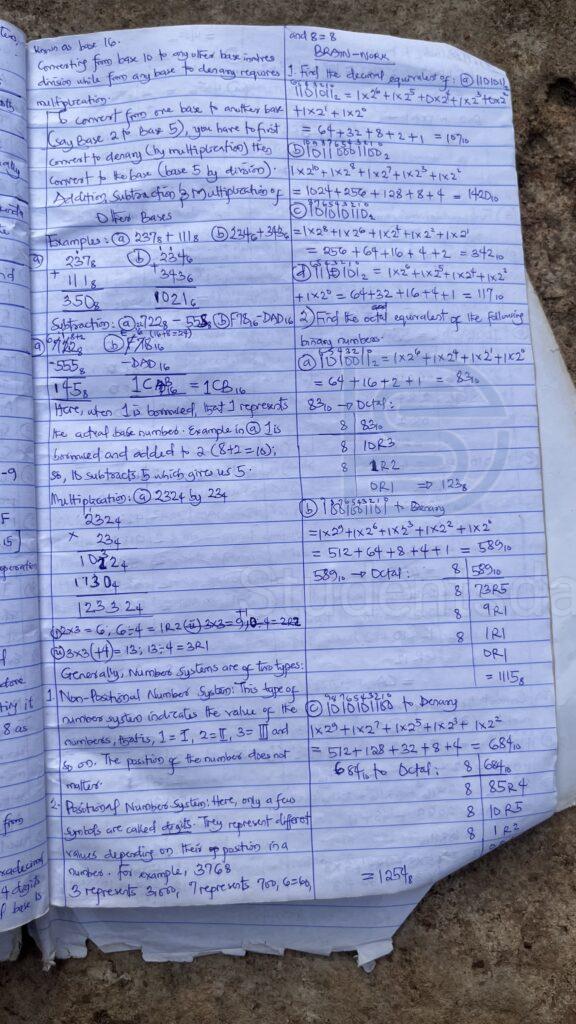 known as base 16.
Converting from base 10 to any other base involves
division while from any base to denary requires
multiplication.
To convert from one base to another base
(say Base 2 to Base 5), you have to first
convert to denary (by multiplication) then
convert to the base (base 5 by division).
Addition, Subtraction & Multiplication of
Other Bases
Examples: (a) 237₈ + 111₈ (b) 234₆ + 343₆
(a) 237₈ (b) 234₆
+ 111₈ + 343₆
350₈ 1021₆
Subtraction: (a) 722₈ - 555₈ (b) F78₁₆ - DAD₁₆
(a) 722₈ (b) F78₁₆
-555₈ -DAD₁₆
145₈ = 1CB₁₆
Here, when 1 is borrowed, that 1 represents
the actual base number. Example in (a) 1 is
borrowed and added to 2 (8+2=10);
so, 10 subtracts 5 which gives us 5.
Multiplication: (a) 232₄ by 23₄
232₄
× 23₄
1130₄
12332₄
(i) 2×3 = 6, 6÷4 = 1R2 (ii) 3×3 = 9
(iii) 3×3(+4) = 13; 13÷4 = 3R1
Generally, Number Systems are of two types:
1. Non-Positional Number System: This type of
number system indicates the value of the
numbers, that is, 1 = I, 2 = II, 3 = III and
so on. The position of the number does not
matter.
2. Positional Number System: Here, only a few
symbols are called digits. They represent different
values depending on their position in a
number. for example, 3768
3 represents 3,000, 7 represents 700, 6=60,
and 8 = 8
BRAIN-WORK
1. Find the decimal equivalent of: (a) 1101011₂
1101011₂ = 1×2⁶ + 1×2⁵ + 0×2⁴ + 1×2³ + 0×2²
+ 1×2¹ + 1×2⁰
= 64+32+8+2+1 = 107₁₀
(b) 10110001100₂
1×2¹⁰ + 1×2⁸ + 1×2⁷ + 1×2³ + 1×2²
= 1024+256+128+8+4 = 1420₁₀
(c) 101010110₂
= 1×2⁸ + 1×2⁶ + 1×2⁴ + 1×2² + 1×2¹
= 256+64+16+4+2 = 342₁₀
(d) 1110101₂ = 1×2⁶ + 1×2⁵ + 1×2⁴ + 1×2²
+ 1×2⁰ = 64+32+16+4+1 = 117₁₀
2) Find the octal equivalent of the following
binary numbers.
(a) 1010011₂ = 1×2⁶ + 1×2⁴ + 1×2¹ + 1×2⁰
= 64+16+2+1 = 83₁₀
83₁₀ → Octal:
8 83₁₀
8 10R3
8 1R2
0R1 ⇒ 123₈
(b) 1001001101 to Denary
= 1×2⁹ + 1×2⁶ + 1×2³ + 1×2² + 1×2⁰
= 512+64+8+4+1 = 589₁₀
589₁₀ → Octal: 8 589₁₀
8 73R5
8 9R1
8 1R1
0R1
= 1115₈
(c) 1010101100 to Denary
1×2⁹ + 1×2⁷ + 1×2⁵ + 1×2³ + 1×2²
= 512+128+32+8+4 = 684₁₀
684₁₀ to Octal: 8 684₁₀
8 85R4
8 10R5
8 1R2
= 1254₈